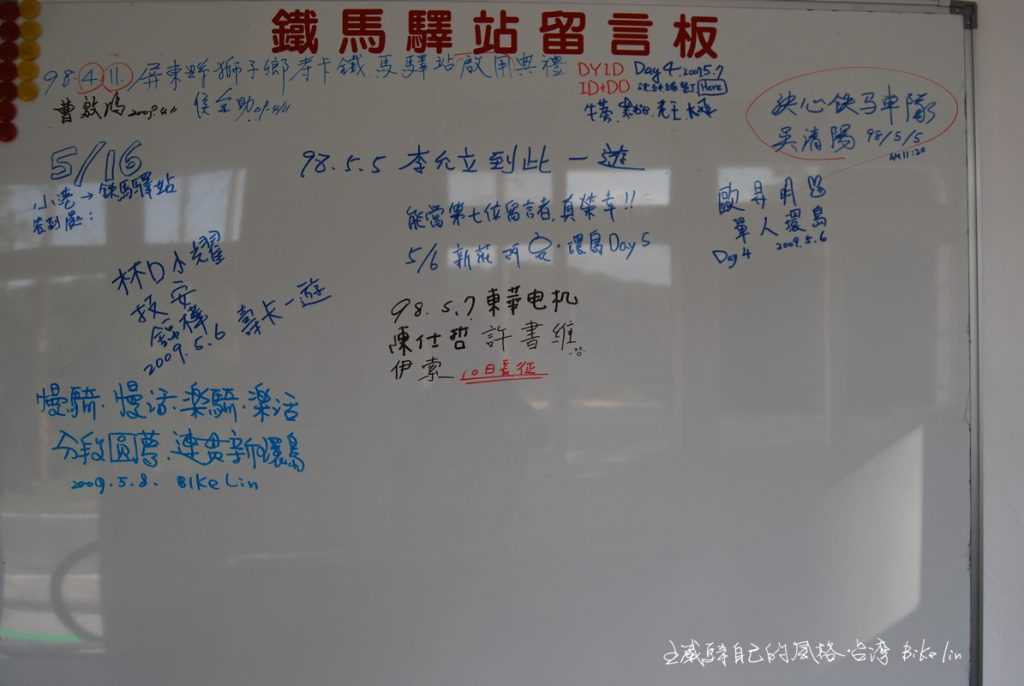 鐵馬驛站留言板
98.4.11.屏東縣獅子鄉壽卡鐵馬驛站啟用典禮
2009.4.11
DYID Day 4 2009.5.7
ID+DO Here
吳清陽 98/5/5
AM11:20
5/16
小港→鉄馬驛站
簽到處:
98.5.5 李允立到此一遊
能當第七位留言者,真榮幸!!
5/6 新莊 環島Day5
單人環島
Day4 2009.5.6
林口小耀
2009.5.6 壽卡一遊
98.5.7 東華电机
陳仕哲 許書維
伊索 10日長征
慢騎.慢活.楽騎.楽活
分段圓夢.連貫新環島
2009.5.8. BIKe Lin
騎自己的風格.台湾 Bike lin